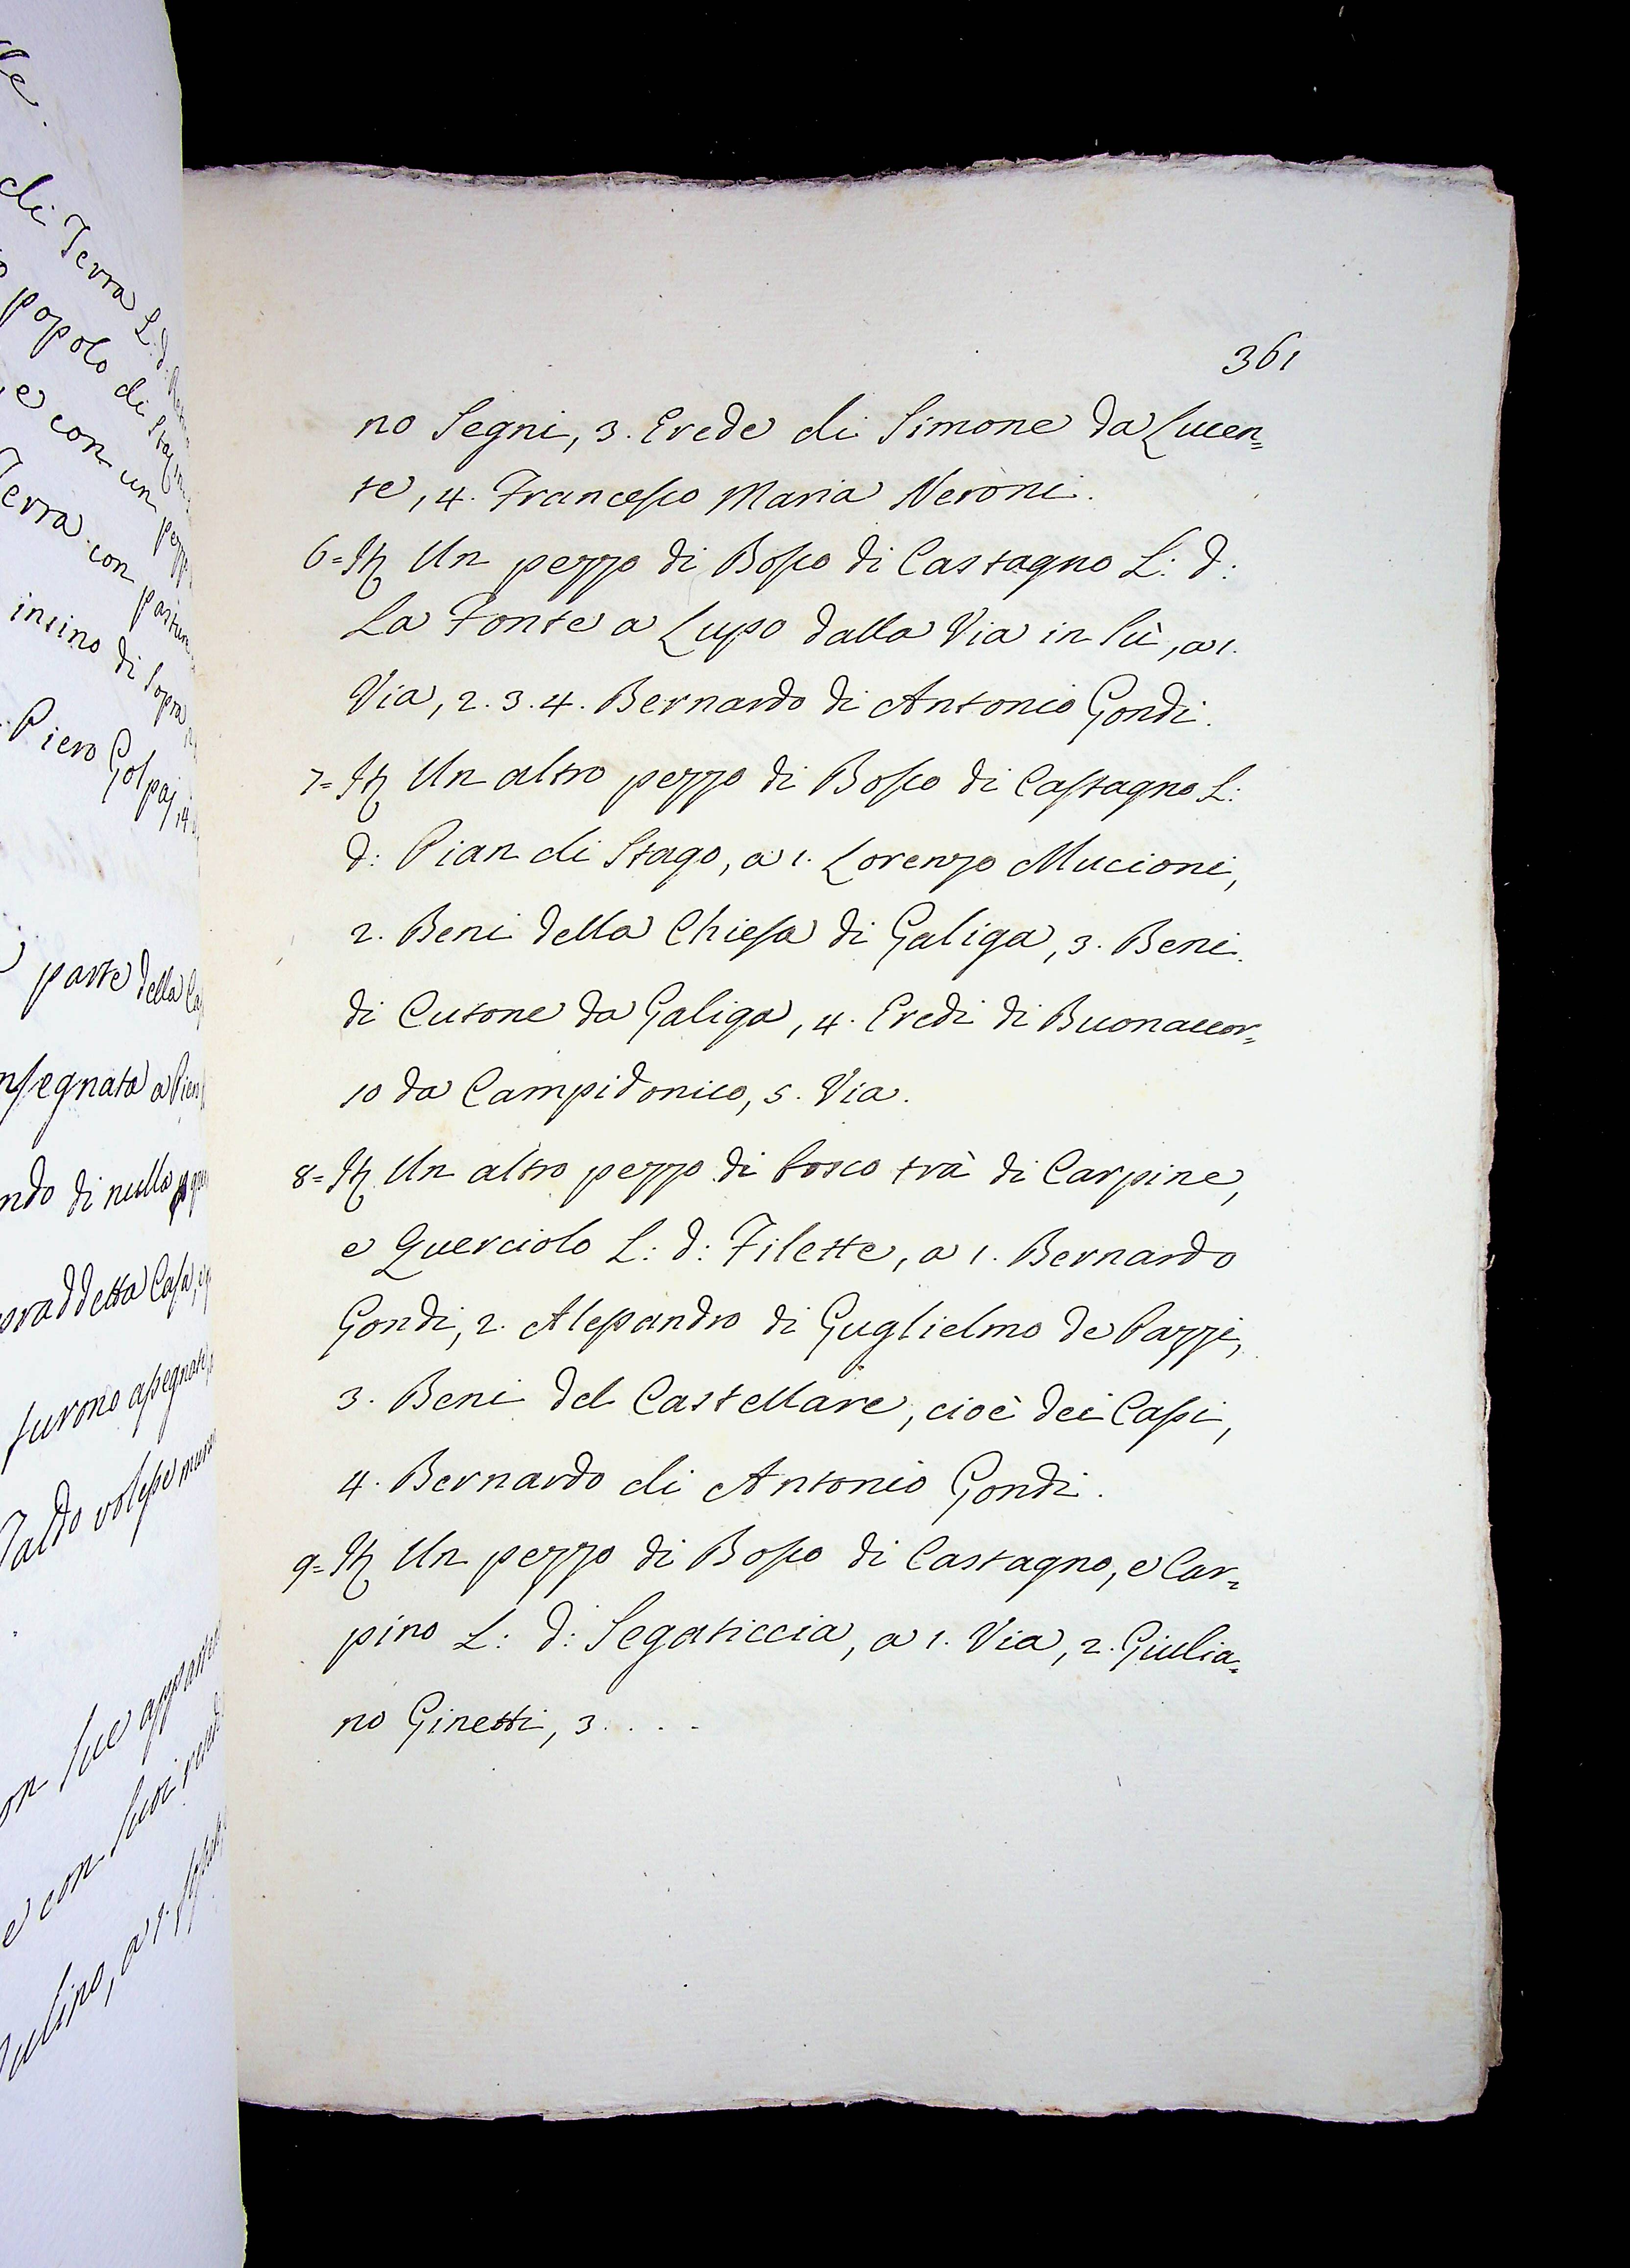 361
no Segni, 3. Erede di Simone da Lucen=
te, 4. Francesco Maria Neroni.
6= It. Un pezzo di Bosco di Castagno L: d:
La Fonte a Lupo dalla Via in sù, a 1.
Via, 2. 3. 4. Bernardo di Antonio Gondi.
7= It. Un altro pezzo di Bosco di Castagno L:
d: Pian di Stago, a 1. Lorenzo Mucioni,
2. Beni della Chiesa di Galiga, 3. Beni
di Cutone da Galiga, 4. Eredi di Buonaccor=
so da Campidonico, 5. Via.
8= It. Un altro pezzo di bosco trà di Carpine,
e Querciolo L: d: Filette, a 1. Bernardo
Gondi, 2. Alessandro di Guglielmo de Pazzi,
3. Beni del Castellare, cioè dei Cassi,
4. Bernardo di Antonio Gondi.
9= It. Un pezzo di Bosco di Castagno, e Car=
pino L: d: Segaticcia, a 1. Via, 2. Giulia=
no Ginetti, 3. . . .
di Terra L: d:
popolo di
e con un
Terra con
insino di sopra
Piero
parte della
di nulla
furono assegnate
con sue
e con suoi